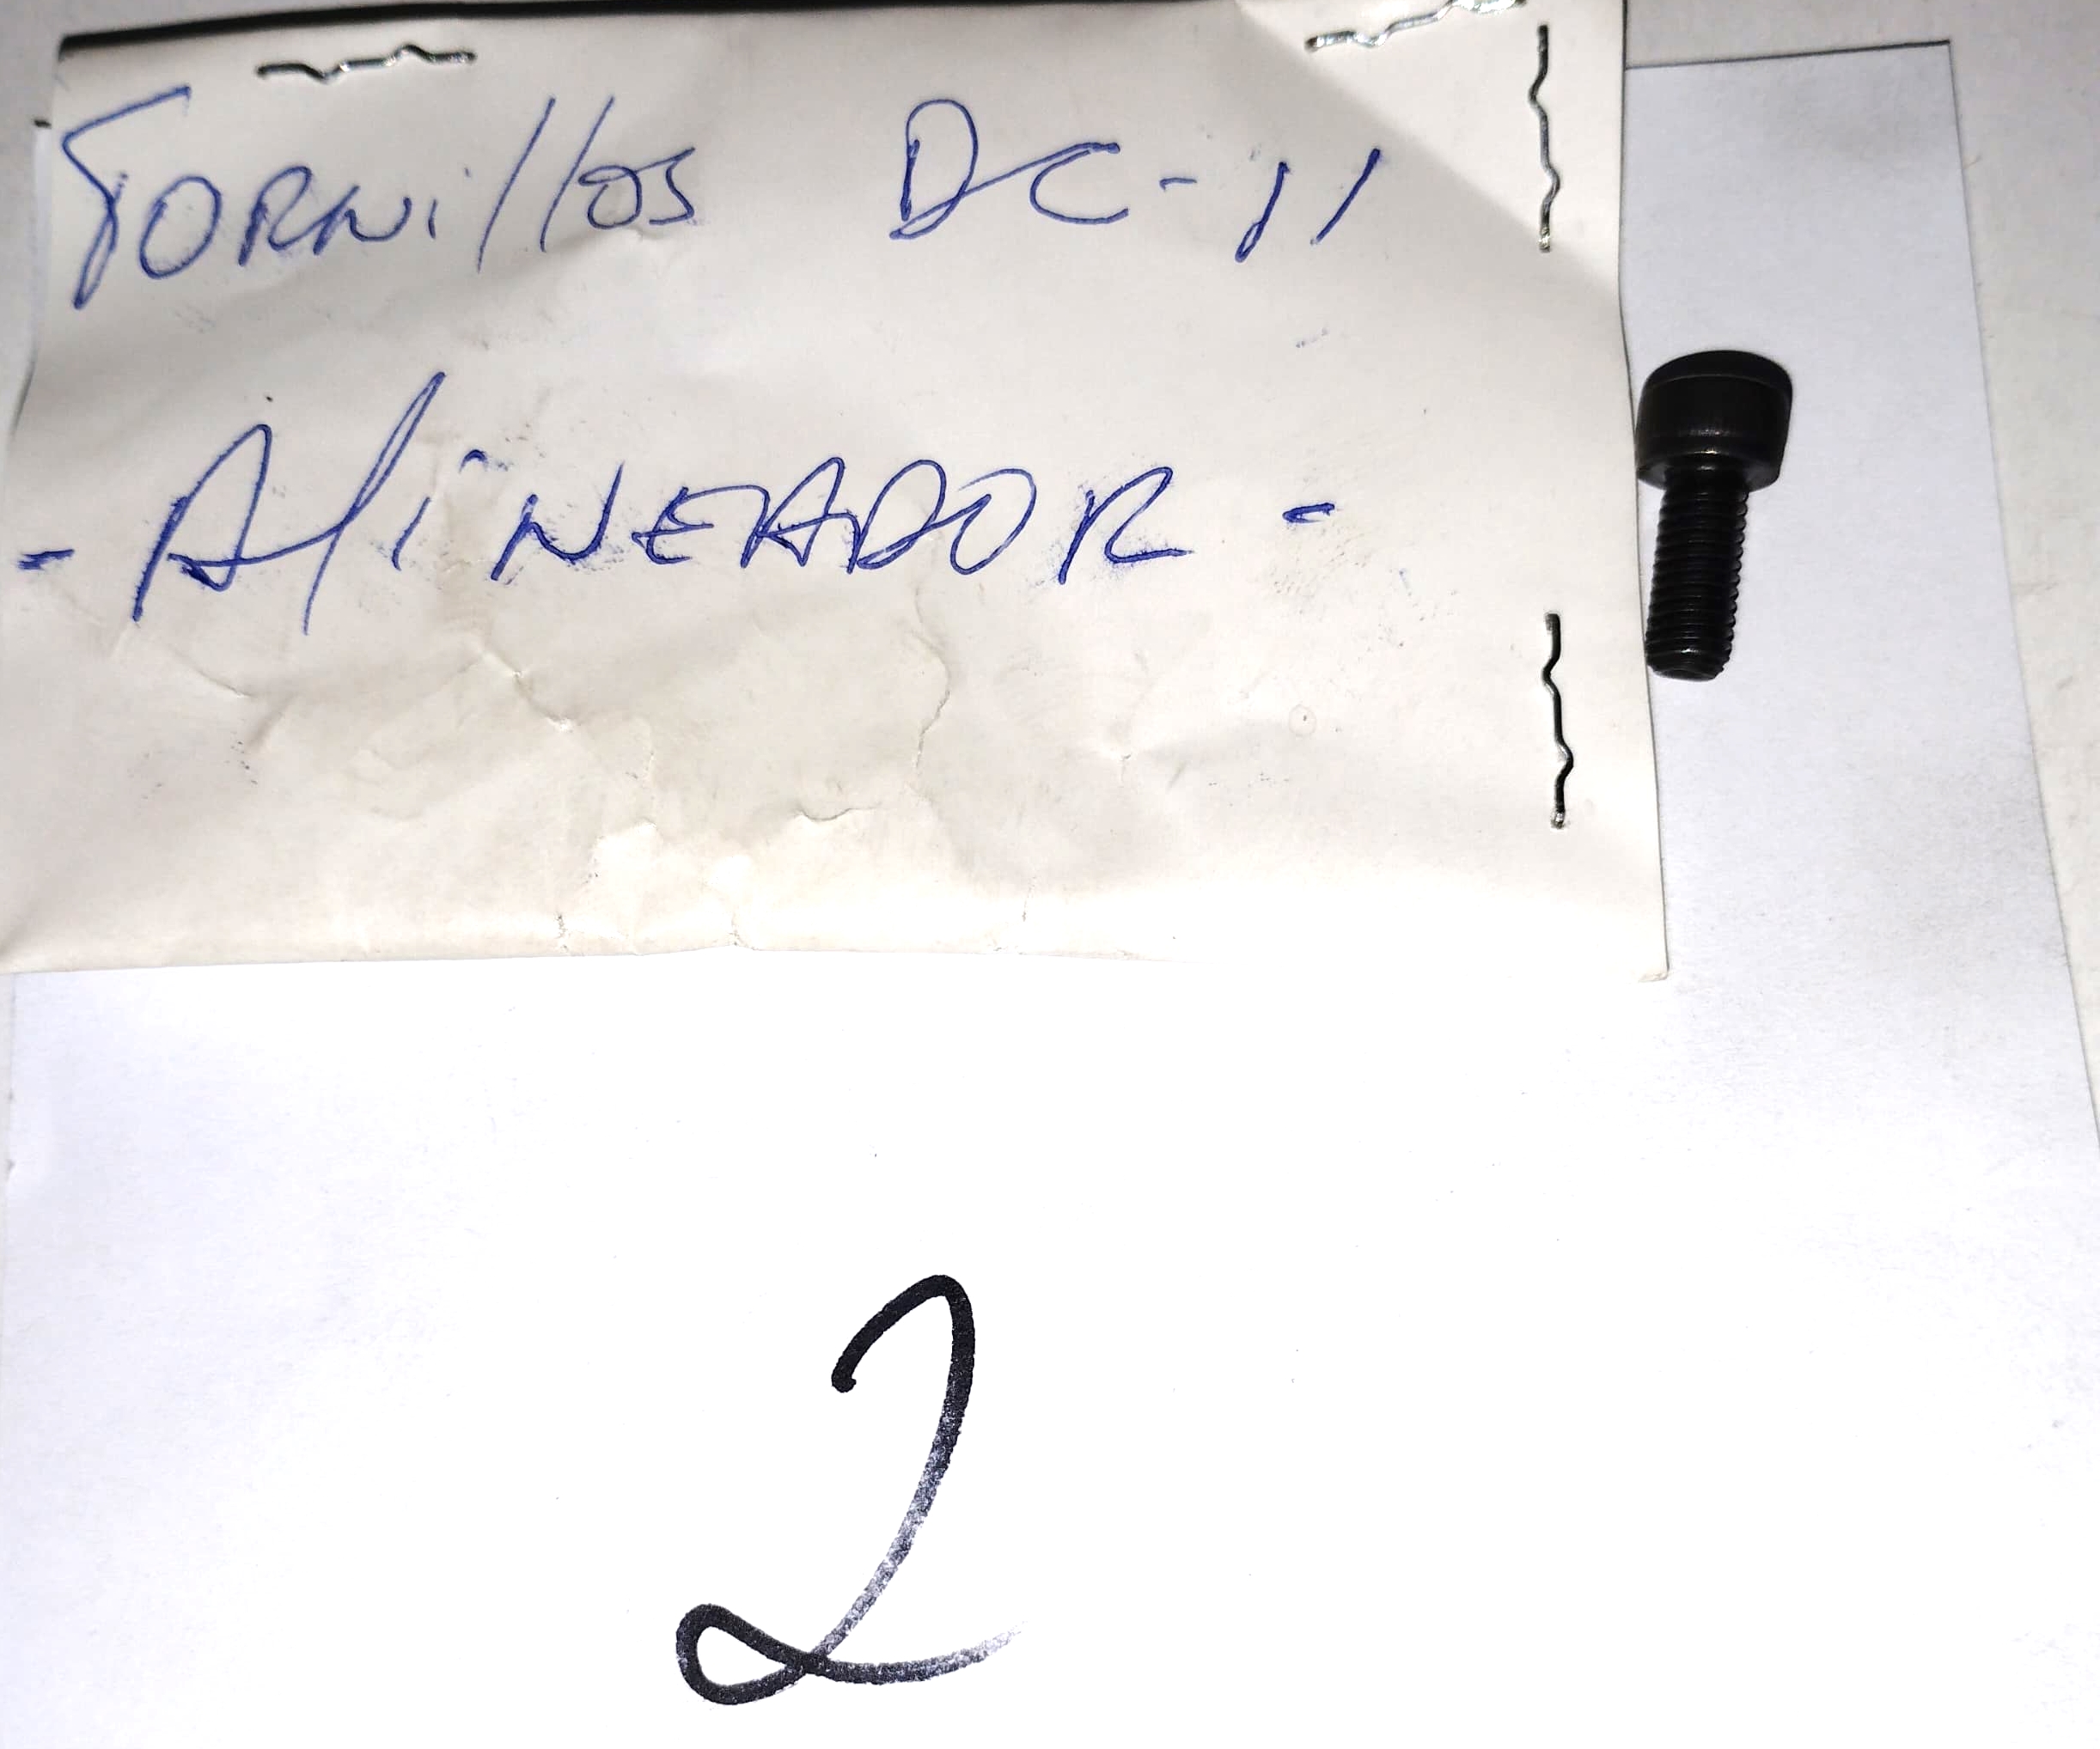 TORNillOS DC-11
- AliNEADOR -
2